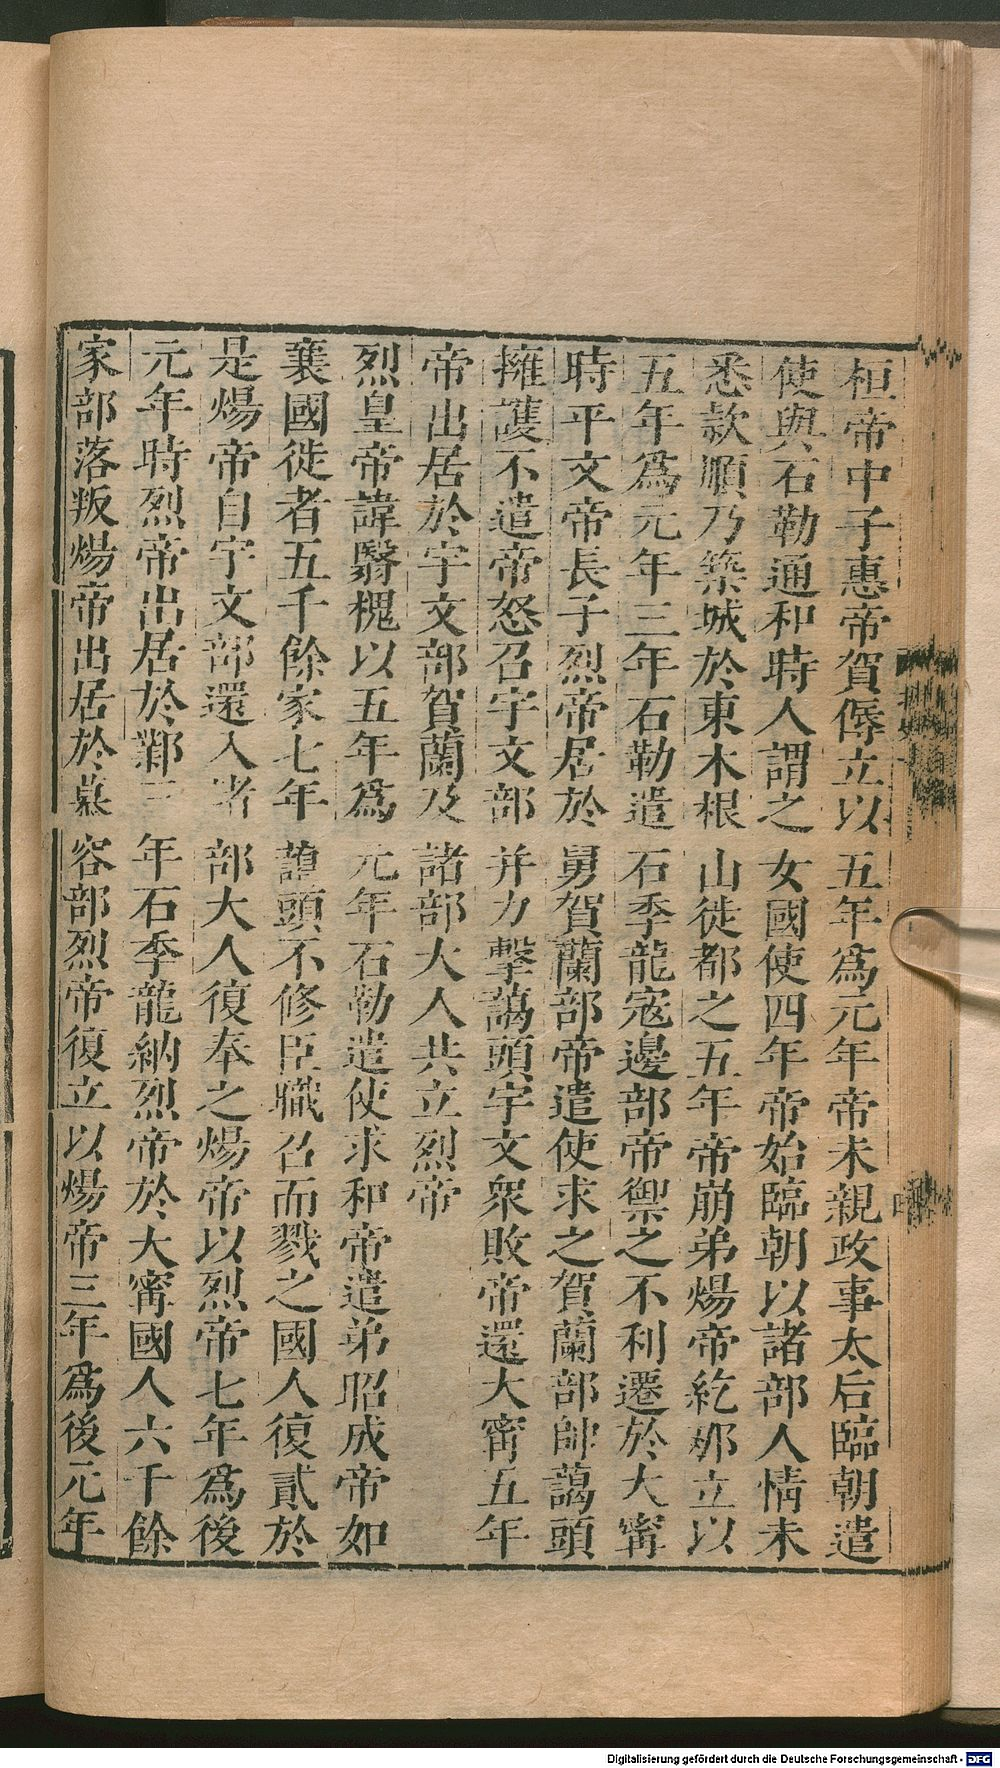 桓帝中子惠帝賀傉立以五年爲元年帝未親政事太后臨朝遣
使與石勒通和時人謂之女國使四年帝始臨朝以諸部人情未
悉款順乃築城於東木根山徙都之五年帝崩弟煬帝紇那立以
五年爲元年三年石勒遣石季龍寇邊部帝禦之不利遷於大甯
時平文帝長子烈帝居於舅賀蘭部帝遣使求之賀蘭部帥藹頭
擁護不遣帝怒召宇文部并力擊藹頭宇文衆敗帝還大甯五年
帝出居於宇文部賀蘭及諸部大人共立烈帝
烈皇帝諱翳槐以五年爲元年石勒遣使求和帝遣弟昭成帝如
襄國徙者五千餘家七年藹頭不修臣職召而戮之國人復貳於
是煬帝自宇文部還入諸部大人復奉之煬帝以烈帝七年爲後
元年時烈帝出居於鄴三年石季龍納烈帝於大甯國人六千餘
家部落叛煬帝出居於慕容部烈帝復立以煬帝三年爲後元年
Digitalisierung gefördert durch die Deutsche Forschungsgemeinschaft - DFG